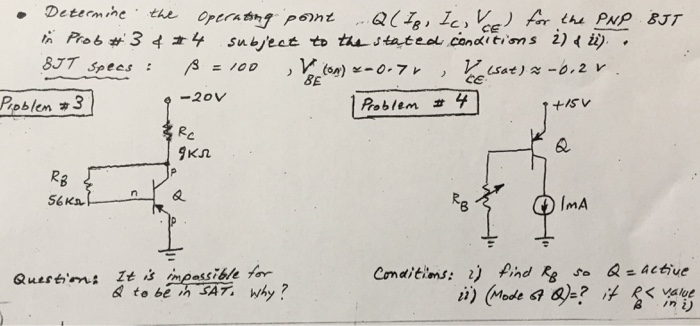 • Determine the operating point Q(IB, IC, VCE) for the PNP BJT
in Prob #3 & #4 subject to the stated conditions i) & ii).
BJT specs : β = 100 , VBE(on) ≈ -0.7 V , VCE(sat) ≈ -0.2 V.
Problem #3
-20V
RC
9KΩ
P
RB
56KΩ
n
Q
P
Question: It is impossible for
Q to be in SAT. Why?
Problem #4
+15V
Q
RB
1mA
Conditions: i) find RB so Q = active
ii) (Mode of Q)=? if RB < value in i)